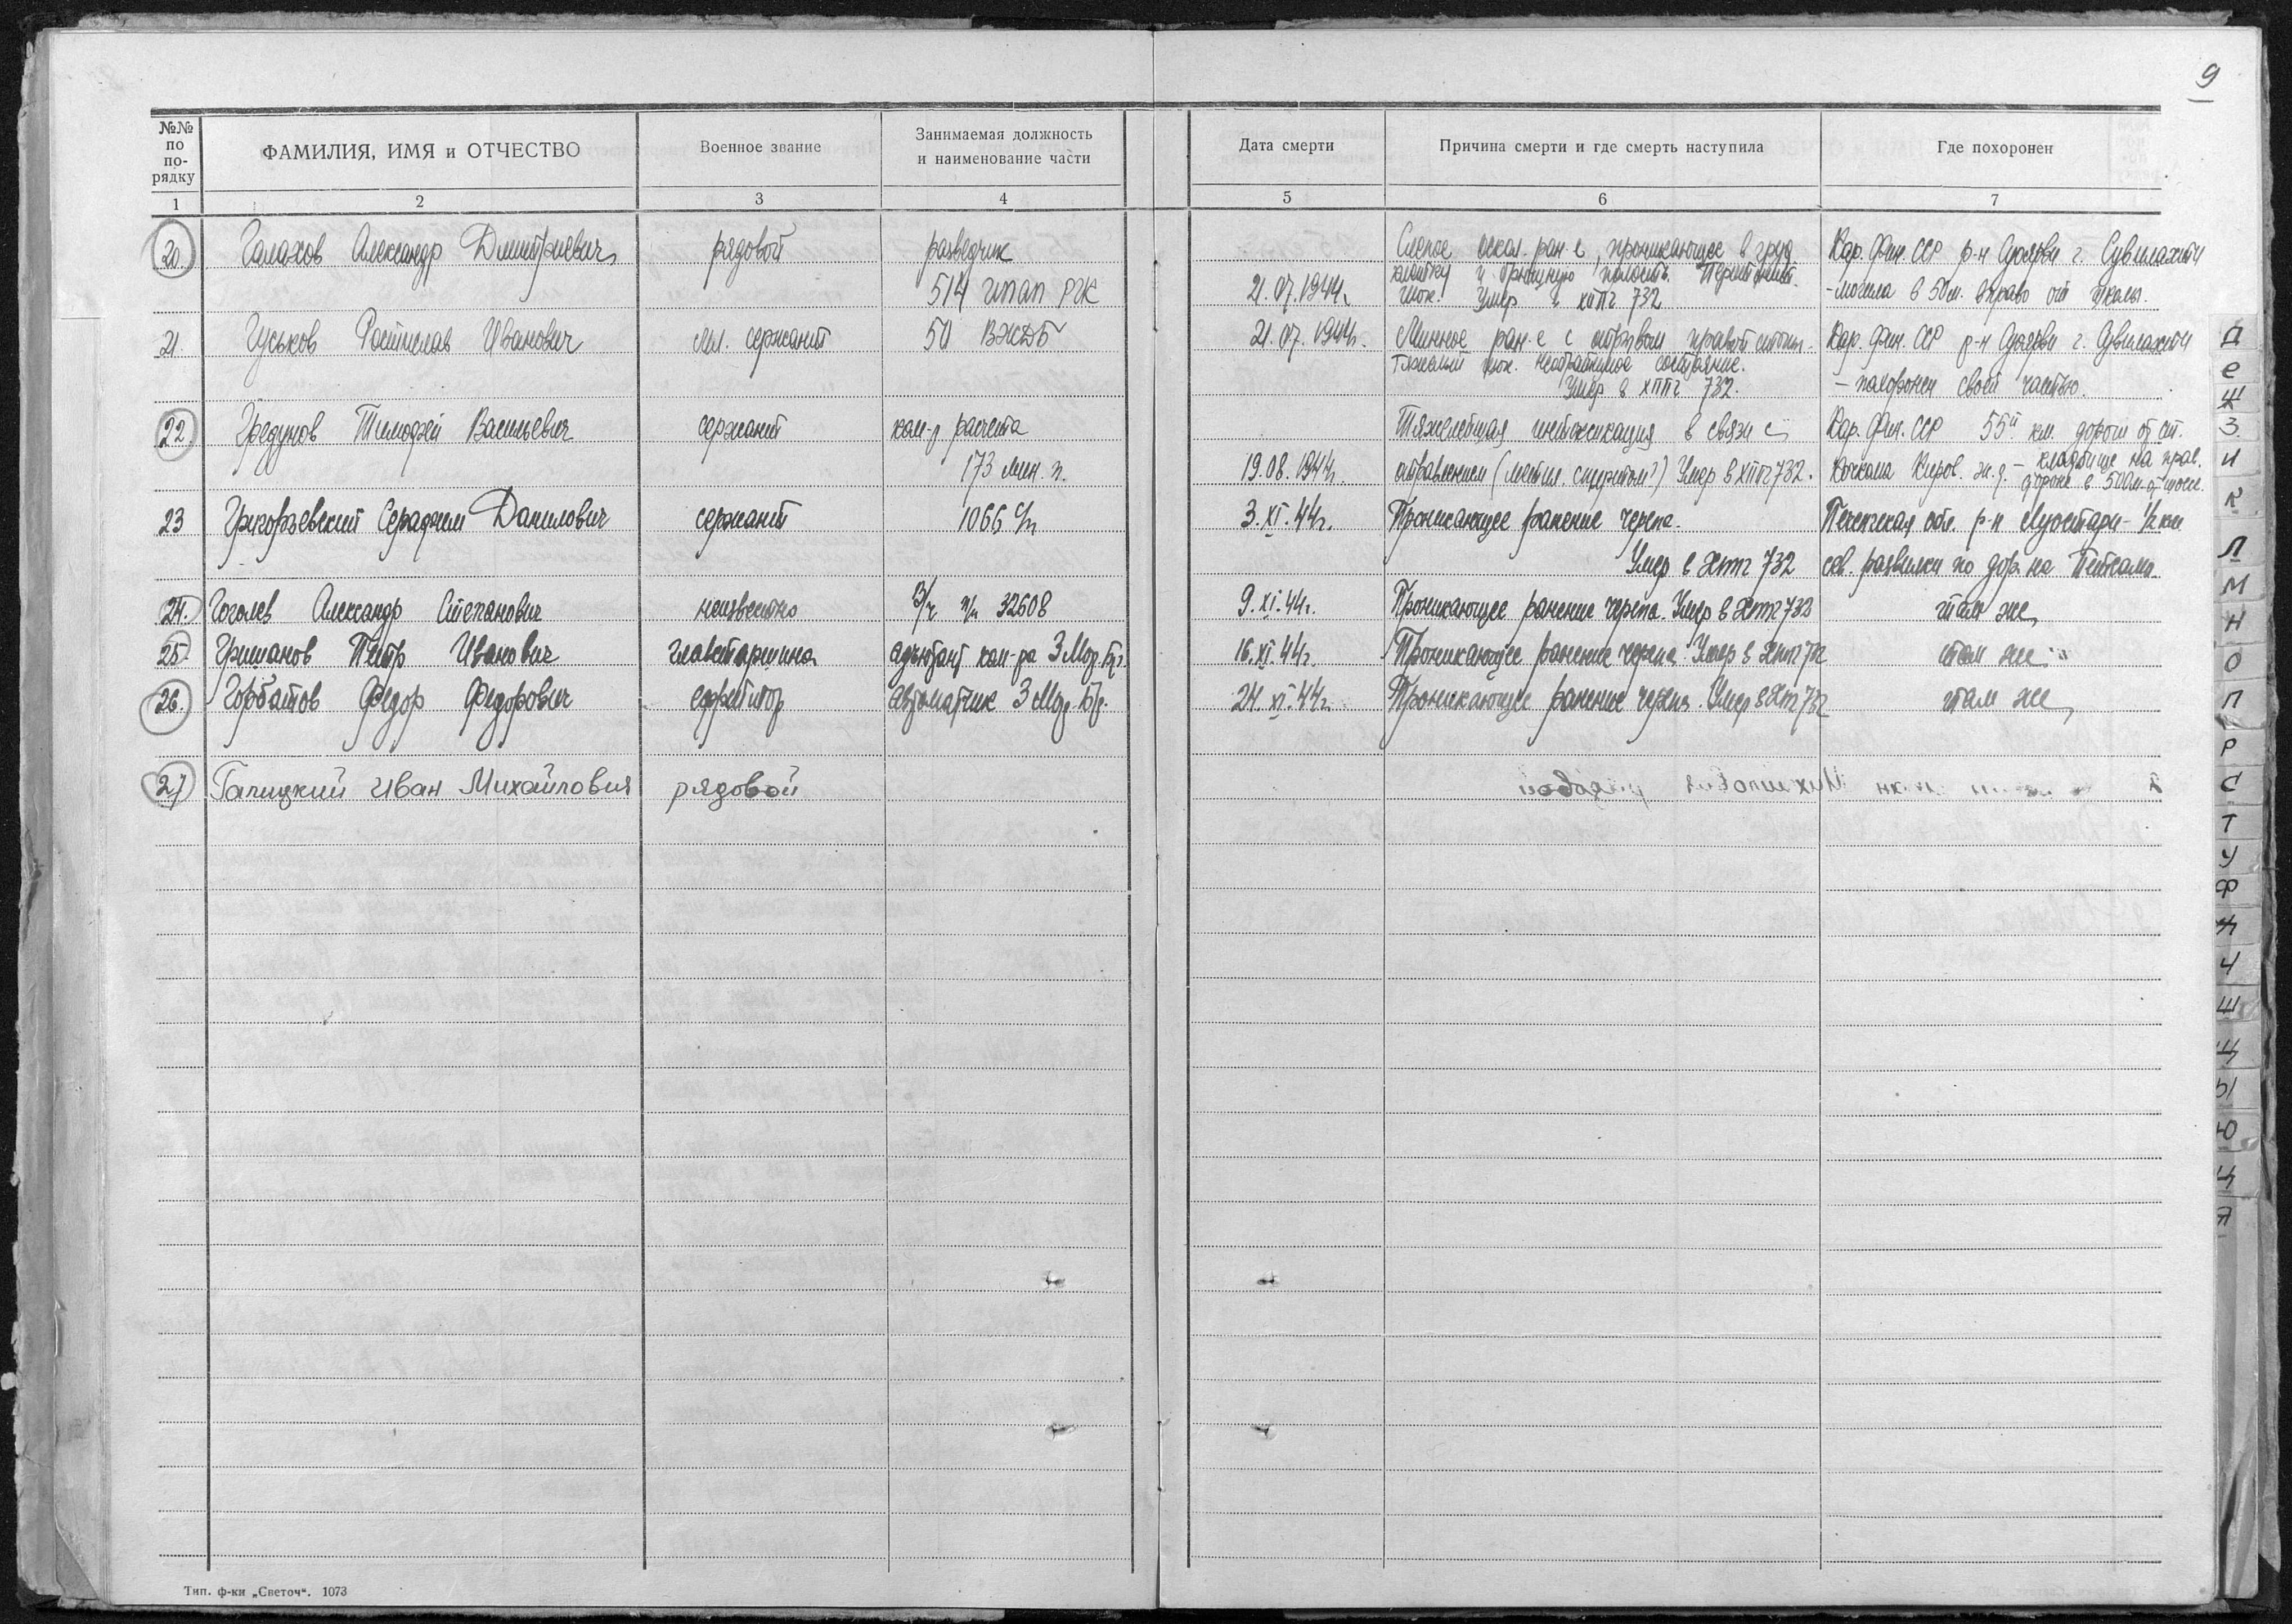 9
№№ по по-рядку
ФАМИЛИЯ, ИМЯ и ОТЧЕСТВО
Военное звание
Занимаемая должность и наименование части
Дата смерти
Причина смерти и где смерть наступила
Где похоронен
1 2 3 4 5 6 7
20. Галахов Александр Дмитриевич рядовой разведчик Слепое оскол. ран-е, проникающее в груд. Кар. Фин. ССР р-н Суоярви г. Сувилахти
514 ипап РГК 21.07.1944г. клетку и брюшную полость. Перитонит. Шок. Умер в хппг 732 - могила в 50 м. вправо от школы.
21. Гуськов Ростислав Иванович мл. сержант 50 ВЖДБ 21.07.1944г. Минное ран-е с отрывом правой стопы. Кар. Фин. ССР р-н Суоярви г. Сувилахти
Тяжелый шок. Необратимое состояние.
Умер в хппг 732. - похоронен своей частью.
22. Гредунов Тимофей Васильевич сержант ком-р расчета Тяжелейшая интоксикация в связи с Кар. Фин. ССР 55й км. дороги от ст.
173 мин. п. 19.08.1944г. отравлением (метил. спиртом?) Умер в хппг 732. Кочкома Киров. ж.д. - кладбище на прав.
23 Григоржевский Серафим Данилович сержант 1066 с/п 3.XI.44г. Проникающее ранение черепа. Печенгская обл. р-н Луостари - 1/2 км
Умер в хппг 732 сев. развилки по дор. на Петсамо
24. Гоголев Александр Степанович неизвестно В/ч п/п 32608 9.XI.44г. Проникающее ранение черепа. Умер в хппг 732 там же
25. Гришанов Петр Иванович главстаршина адъютант ком-ра 3 Мор. бр. 16.XI.44г. Проникающее ранение черепа Умер в хппг 732 там же
26. Горбатов Федор Федорович ефрейтор автоматчик 3 Мор. бр. 24.XI.44г. Проникающее ранение черепа. Умер в хппг 732 там же
27 Галицкий Иван Михайлович рядовой
Тип. ф-ки „Светоч“. 1073
Д
Е
Ж
З
И
К
Л
М
Н
О
П
Р
С
Т
У
Ф
Х
Ч
Ш
Щ
Ы
Ю
Я